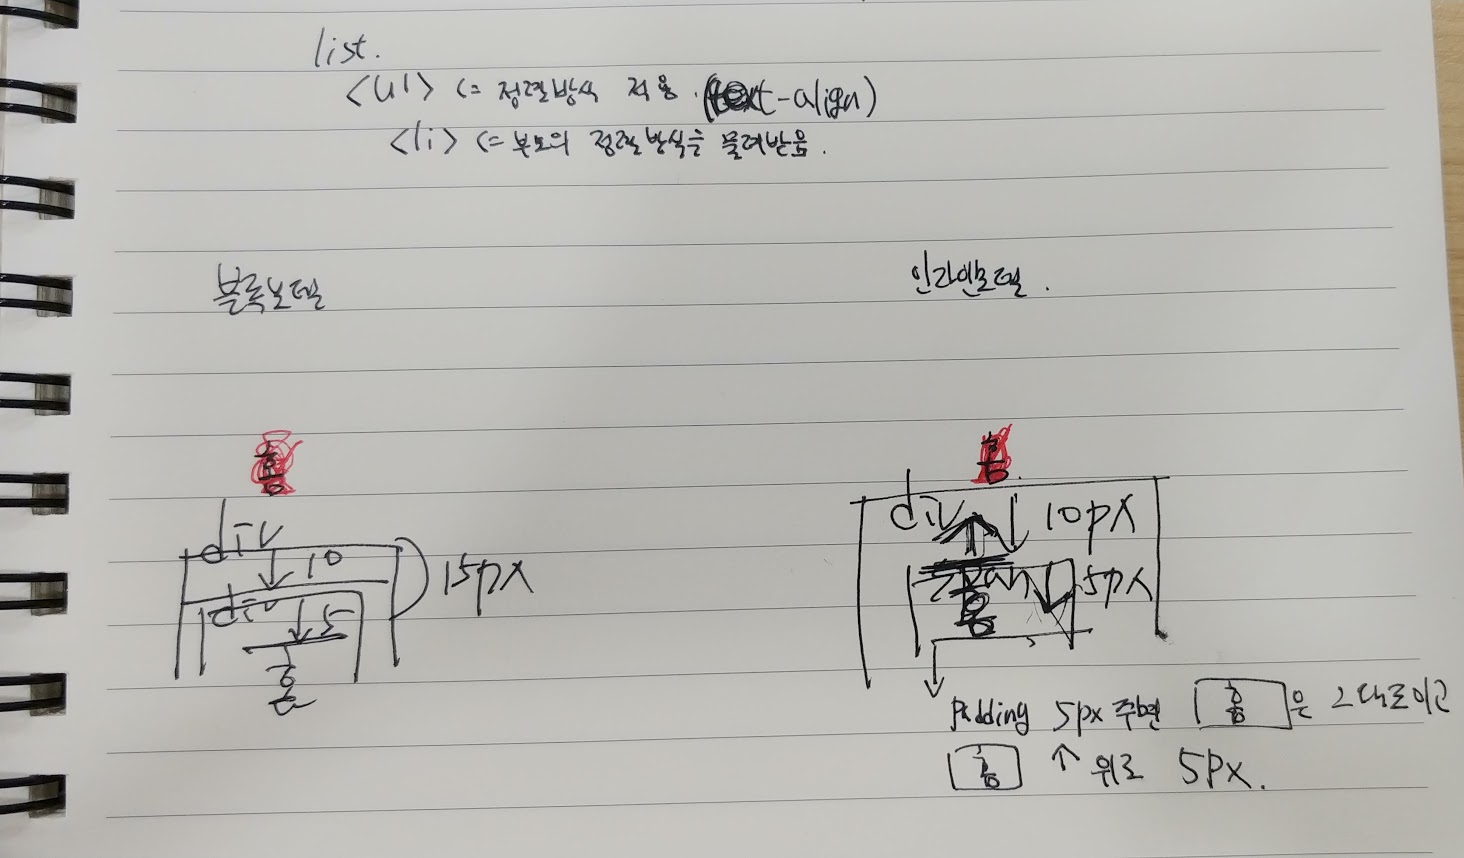 list.
<ul> <= 정렬방식 적용. (text-align)
<li> <= 부모의 정렬방식을 물려받음.
블록모델
인라인모델.
홈
div
10
15px
div
5
홈
홈
div 10px
span 5px
홈
padding 5px 주면 홈은 그대로이고
홈 ↑ 위로 5px.